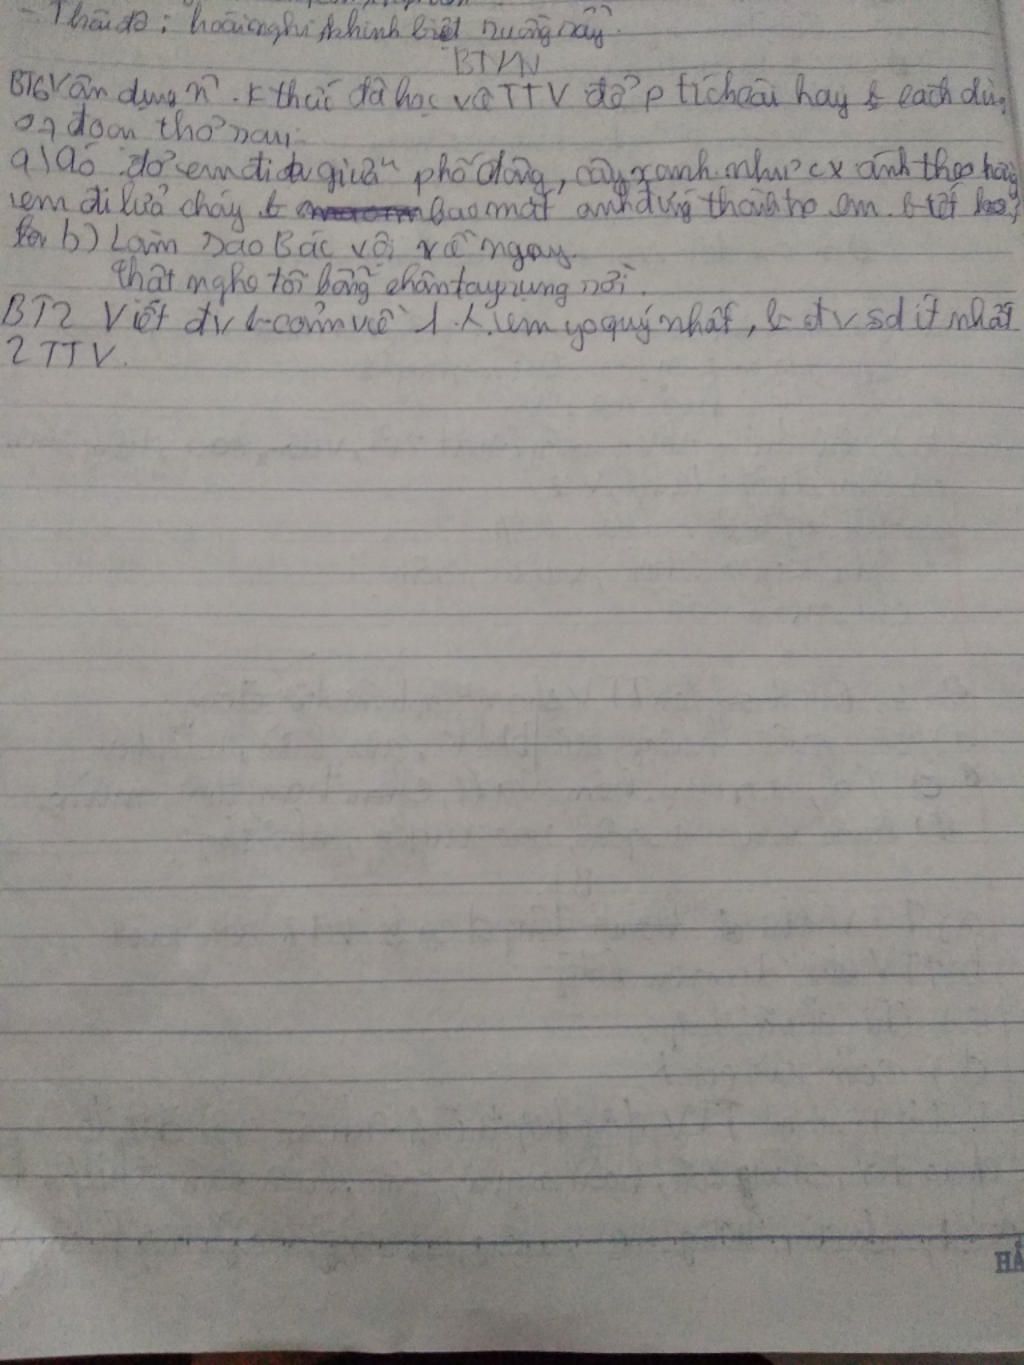 - Thái độ: hoài nghi khinh biệt ruồng rẫy.
BTVN
BT6 Vận dụng n~ . k thức đã học về TTV để p tích cái hay & cách dùng
on đoạn thơ sau:
a) áo đỏ em đi giữa phố đông, cây xanh như cx ánh theo hồng
em đi lửa cháy & bao mắt anh đứng thành tro em biết
b) Làm sao Bác vội về ngay
Chợt nghe tôi bỗng chân tay rụng rời.
BT2 Viết đv cảm về 1 k. em yo quý nhất, & đv sd ít nhất
2 TTV.
HẢ